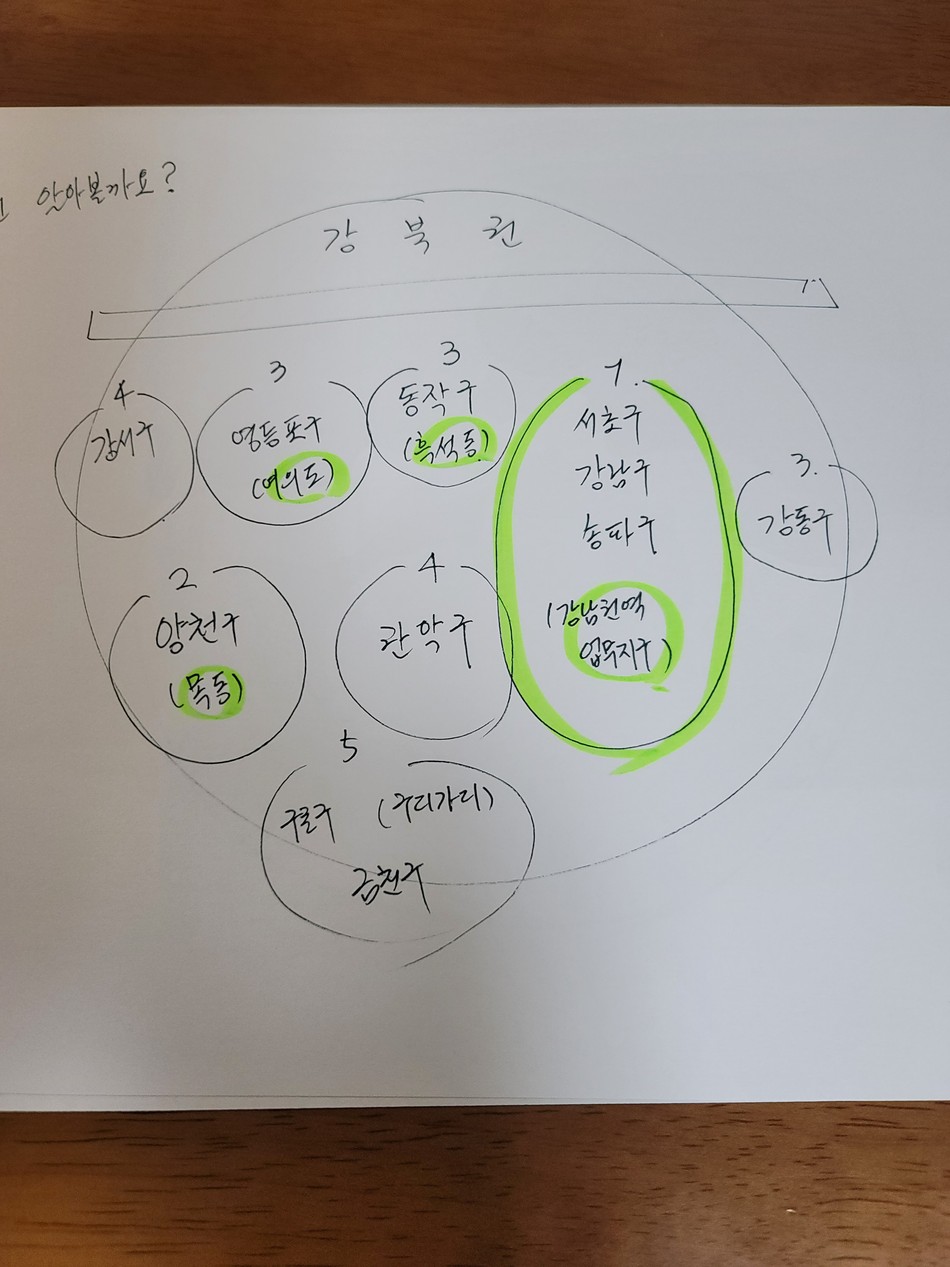 알아볼까요?
강 북 권
4
강서구
3
영등포구
(여의도)
3
동작구
(흑석동)
1.
서초구
강남구
송파구
(강남권역
업무지구)
3.
강동구
2
양천구
(목동)
4
관악구
5
구로구 (구디가디)
금천구